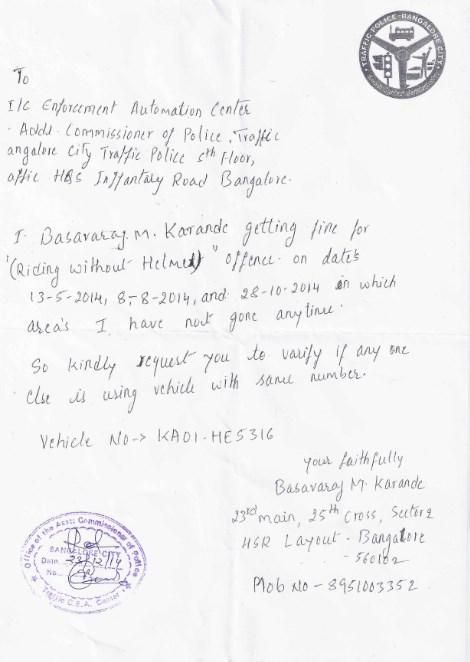 TRAFFIC POLICE - BANGALORE CITY
To
I/C Enforcement Automation Center
Addl. Commissioner of Police, Traffic
angalore City Traffic Police 5th Floor,
affic HQs Inffantary Road Bangalore.
I Basavaraj. M. Karande getting fine for
"(Riding without Helmet)" offence on date's
13-5-2014, 8-8-2014, and 28-10-2014 in which
area's I have not gone anytime.
So kindly request you to varify if any one
else is using vehicle with same number.
Vehicle No-> KA01-HE5316
your faithfully
Basavaraj M. Karande
23rd main, 25th Cross, Sector 2
HSR Layout - Bangalore
- 560102
Mob No - 8951003352
Office of the Asst: Commissioner of Police
BANGALORE CITY
Date 22/12/14
No.
Traffic C.E.A. Center